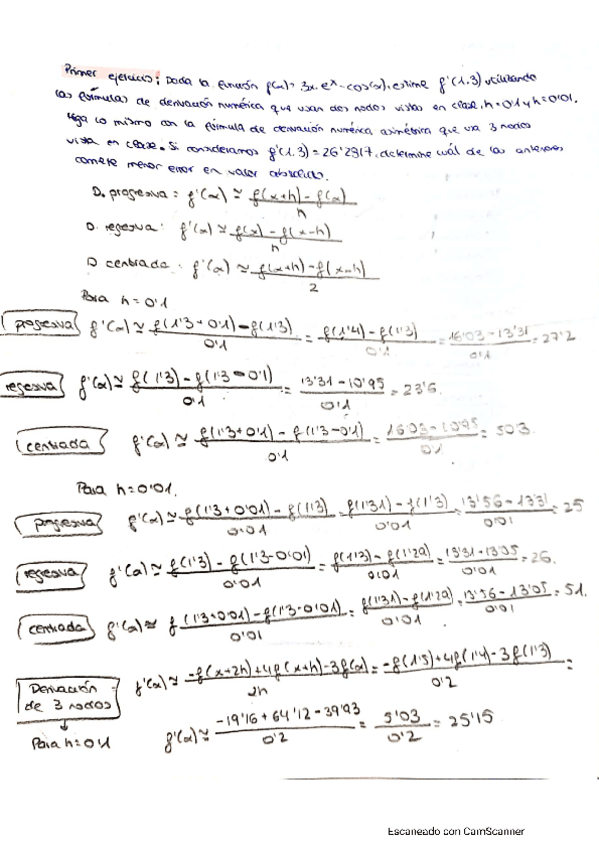 Primer ejercicio: Dada la función f(x)= 3x·eˣ-cos(x), estime f'(1.3) utilizando
las fórmulas de derivación numérica que usan dos nodos vistas en clase, h=0'1 y h=0'01.
Haga lo mismo con la fórmula de derivación numérica asimétrica que usa 3 nodos
vista en clase. Si consideramos f'(1.3)=26'2917, determine cuál de las anteriores
comete menor error en valor absoluto.
D. progresiva: f'(x) ≅ f(x+h)-f(x) / h
D. regresiva: f'(x) ≅ f(x)-f(x-h) / h
D centrada: f'(x) ≅ f(x+h)-f(x-h) / 2
Para h=0'1
progresiva f'(x) ≅ f(1'3+0'1)-f(1'3) / 0'1 = f(1'4)-f(1'3) / 0'1 = 16'03-13'31 / 0'1 = 27'2
regresiva f'(x) ≅ f(1'3)-f(1'3-0'1) / 0'1 = 13'31-10'95 / 0'1 = 23'6.
centrada f'(x) ≅ f(1'3+0'1)-f(1'3-0'1) / 0'1 = 16'03-10'95 / 0'1 = 50'3
Para h=0'01.
progresiva f'(x) ≅ f(1'3+0'01)-f(1'3) / 0'01 = f(1'31)-f(1'3) / 0'01 = 13'56-13'31 / 0'01 = 25
regresiva f'(x) ≅ f(1'3)-f(1'3-0'01) / 0'01 = f(1'3)-f(1'29) / 0'01 = 13'31-13'05 / 0'01 = 26.
centrada f'(x) ≅ f(1'3+0'01)-f(1'3-0'01) / 0'01 = f(1'31)-f(1'29) / 0'01 = 13'56-13'05 / 0'01 = 51.
Derivación de 3 nodos f'(x) ≅ -f(x+2h)+4f(x+h)-3f(x) / 2h = -f(1'5)+4f(1'4)-3f(1'3) / 0'2 =
Para h=0'1 f'(x) ≅ -19'16+64'12-39'93 / 0'2 = 5'03 / 0'2 = 25'15
Escaneado con CamScanner